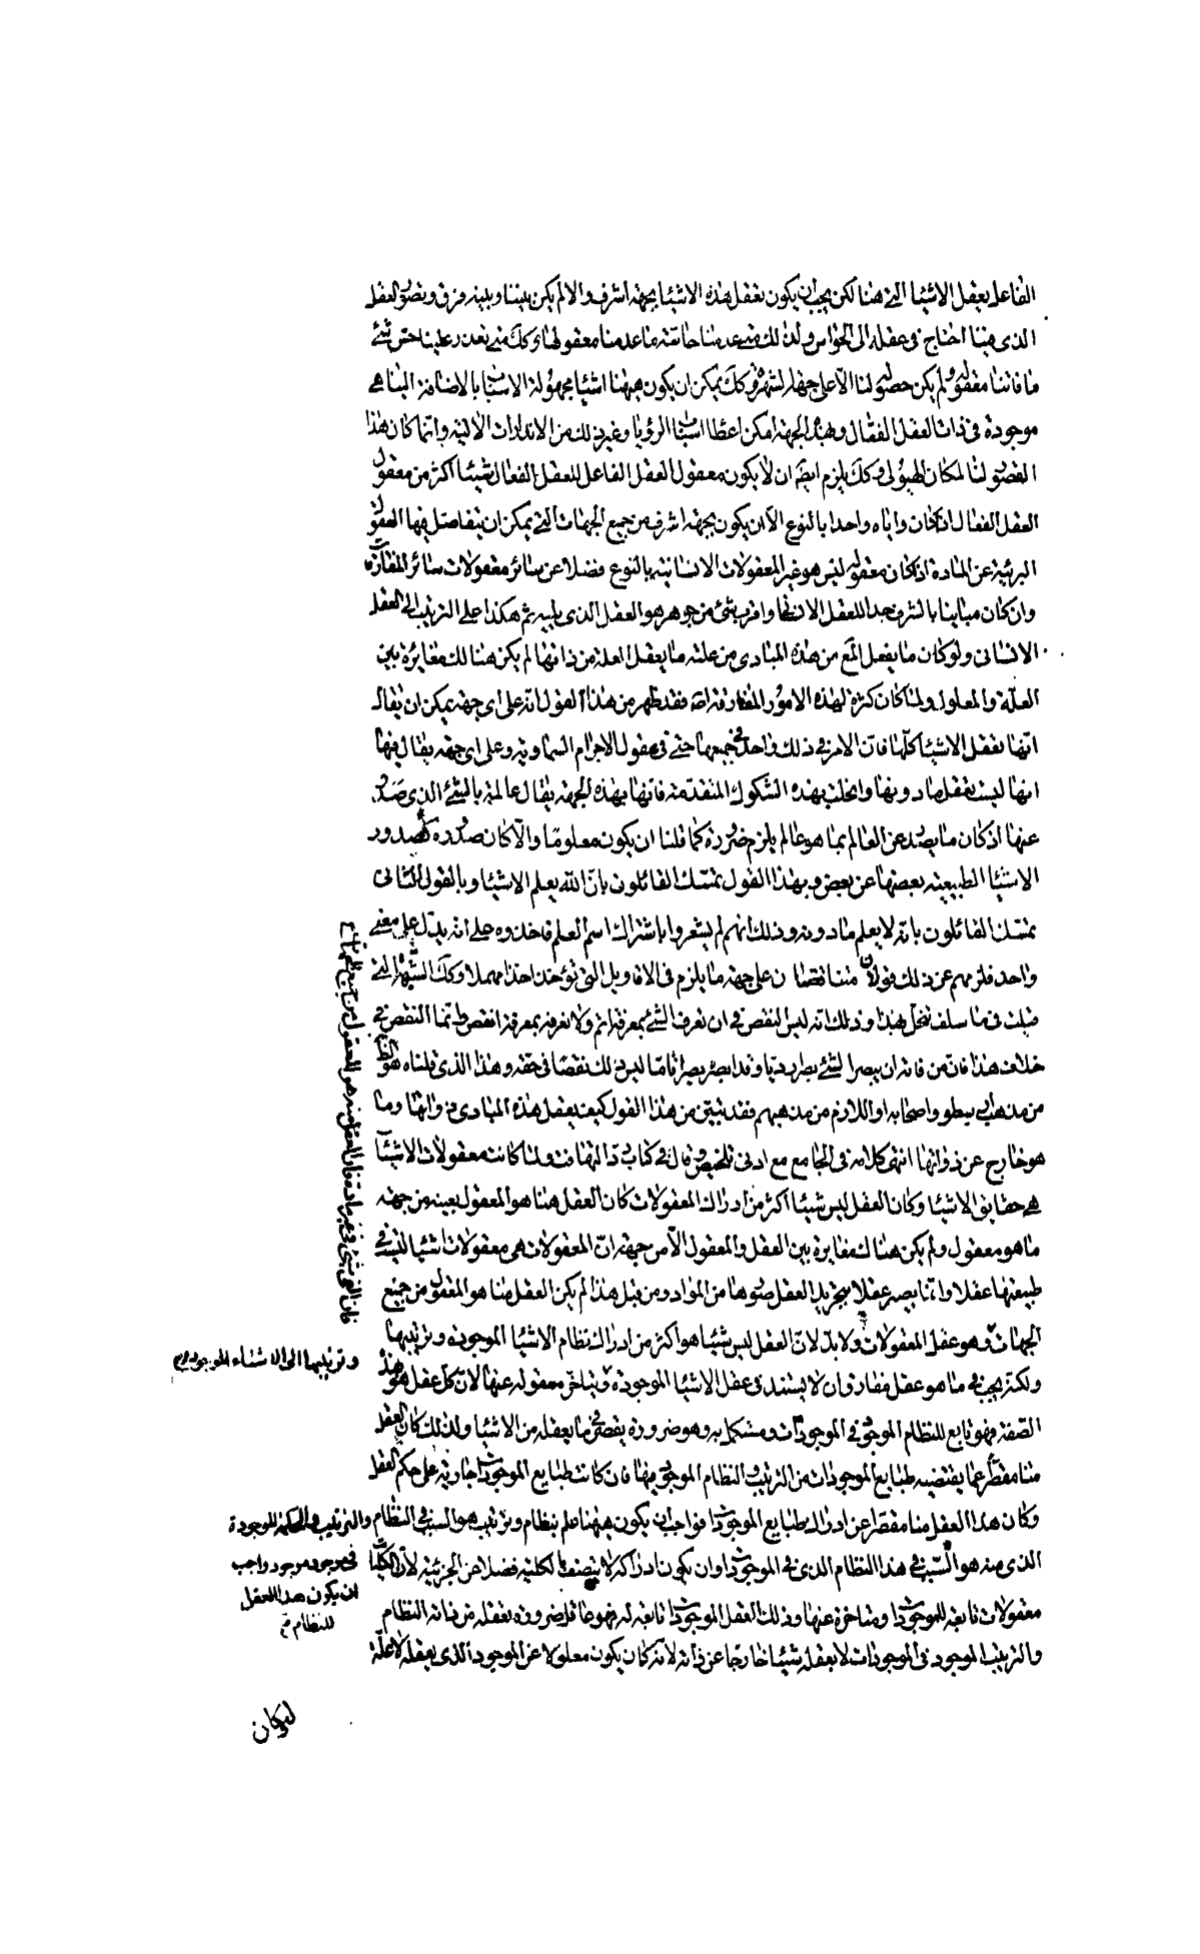 الفاعل يعقل الاشيا التي هنا لكن يجب ان يكون تعقل هذه الاشيا بجهة اشرف والا لم يكن بيننا وبينه فرق وتصور العقل
الذى هنا احتاج فى عقله الى الحواس ولذلك متى عدمنا حاسة ما عدمنا معقولها وكك متى تعذر علينا حس شئ
ما فاتنا معقوله ولم يكن حصوله لنا الا على جهة الشهرة وكك يمكن ان يكون ههنا اشيا مجهولة الاسباب بالاضافة الينا هى
موجودة فى ذات العقل الفعال وبهذه الجهة امكن اعطا اسباب الرؤيا وغير ذلك من الانذارات الاتية وانما كان هذا
القصور لنا لمكان الهيولى وكك يلزم ايضا ان لا يكون معقول العقل الفاعل للعقل الفعال شيئا اكثر من معقول
العقل الفعال اذ كان واياه واحدا بالنوع الا ان يكون بجهة اشرف من جميع الجهات التى يمكن ان يتفاضل فيها العقول
البريئة عن المادة اذ كان معقوله ليس هو غير المعقولات الانسانية بالنوع فضلا عن سائر معقولات سائر المفارقة
وان كان مباينا بالشرف جدا للعقل الانسانى واقرب شئ من جوهره هو العقل الذى يليه ثم هكذا على الترتيب الى العقل
الانسانى ولو كان ما يعقل المع من هذه المبادى من علته ما يعقل العلة من ذاتها لم يكن هنالك مغايرة بين
العلة والمعلول ولما كان كثرة لهذه الامور المفارقة اصه فقد ظهر من هذا القول انه على اى جهة يمكن ان يقال
انها تعقل الاشيا كلها فان الامر فى ذلك واحد فى جميعها حتى فى عقول الاجرام السماوية وعلى اى جهة يقال فيها
انها ليست تعقل ما دونها وانحلت بهذه الشكوك المتقدمة فانها بهذه الجهة يقال عالمة بالشئ الذى صدر
عنها اذ كان ما يصدر عن العالم بما هو عالم يلزم ضرورة كما قلنا ان يكون معلوما والا كان صدوره كصدور
الاشيا الطبيعية بعضها عن بعض وبهذا القول تمسك القائلون بان الله يعلم الاشيا وبالقول الثانى
تمسك القائلون بانه لا يعلم ما دونه وذلك انهم لم يشعروا باشتراك اسم العلم فاخذوه على انه يدل على معنى
واحد فلزمهم عن ذلك قولان متناقضان على جهة ما يلزم فى الاقاويل التى تؤخذ اخذا مهملا وكك الشبهة التى
قيلت فى ما سلف تنحل بهذا وذلك انه ليس النقص فى ان نعرف الشئ بمعرفة اتم ولا نعرفه بمعرفة انقص وانما النقص فى
خلاف هذا فان من فاته ان يبصر الشئ بصرا رديا وقد ابصره بصرا تاما ليس ذلك نقصا فى حقه وهذا الذى قلناه هو الظ
من مذهب ارسطو واصحابه او اللازم من مذهبهم فقد تبين من هذا القول كيف يعقل هذه المبادى ذواتها وما
هو خارج عن ذواتها انتهى كلامه فى الجامع مع ادنى تلخيص وقال فى كتاب رد التهافت ولما كانت معقولات الاشيا
هى حقايق الاشيا وكان العقل ليس شيئا اكثر من ادراك المعقولات كان العقل هنا هو المعقول بعينه من جهة
ما هو معقول ولم يكن هنالك مغايرة بين العقل والمعقول الا من جهة ان المعقولات هى معقولات اشيا ليست فى
طبيعتها عقلا وانما يصير عقلا بتجريد العقل صورها من المواد ومن قبل هذا لم يكن العقل منا هو المعقول من جميع
الجهات وهو عقل المعقولات ولا بد لان العقل ليس شيئا هو اكثر من ادراك نظام الاشيا الموجودة وترتيبها
ولكنه يجب فى ما هو عقل مفارق ان لا يستند فى عقل الاشيا الموجودة ويتاخر معقوله عنها لان كل عقل هو بهذه
الصفة فهو تابع للنظام الموجود فى الموجودات ومستكمل به وهو ضرورة يقصر فى ما يعقله من الاشيا ولذلك كان العقل
منا مقصرا عما يقتضيه طبايع الموجودات من الترتيب والنظام الموجود فيها فان كانت طبايع الموجودات جارية على حكم العقل
وكان هذا العقل منا مقصرا عن ادراك طبايع الموجودات فواجب ان يكون ههنا علم بنظام وترتيب هو السبب فى النظام والترتيب والحكمة الموجودة
الذى منه هو السبب فى هذا النظام الذى فى الموجودات وان يكون ادراكه لا يتصف بالكلية فضلا عن الجزئية لان الكليات
معقولات تابعة للموجودات ومتاخرة عنها وذلك العقل الموجودات تابعة له فهو عاقل ضرورة بعقله من ذاته النظام
والترتيب الموجود فى الموجودات لا بعقله شيئا خارجا عن ذاته لانه كان يكون معلولا عن الموجود الذى يعقله لا علة
فان الفى شئ فى غير مادة فان العقل منه هو المعقول من جميع الجهات
وترتيبها الى الاشياء الموجودة
فى موجود موجود واجب
ان يكون هذا العقل
للنظام
لو كان